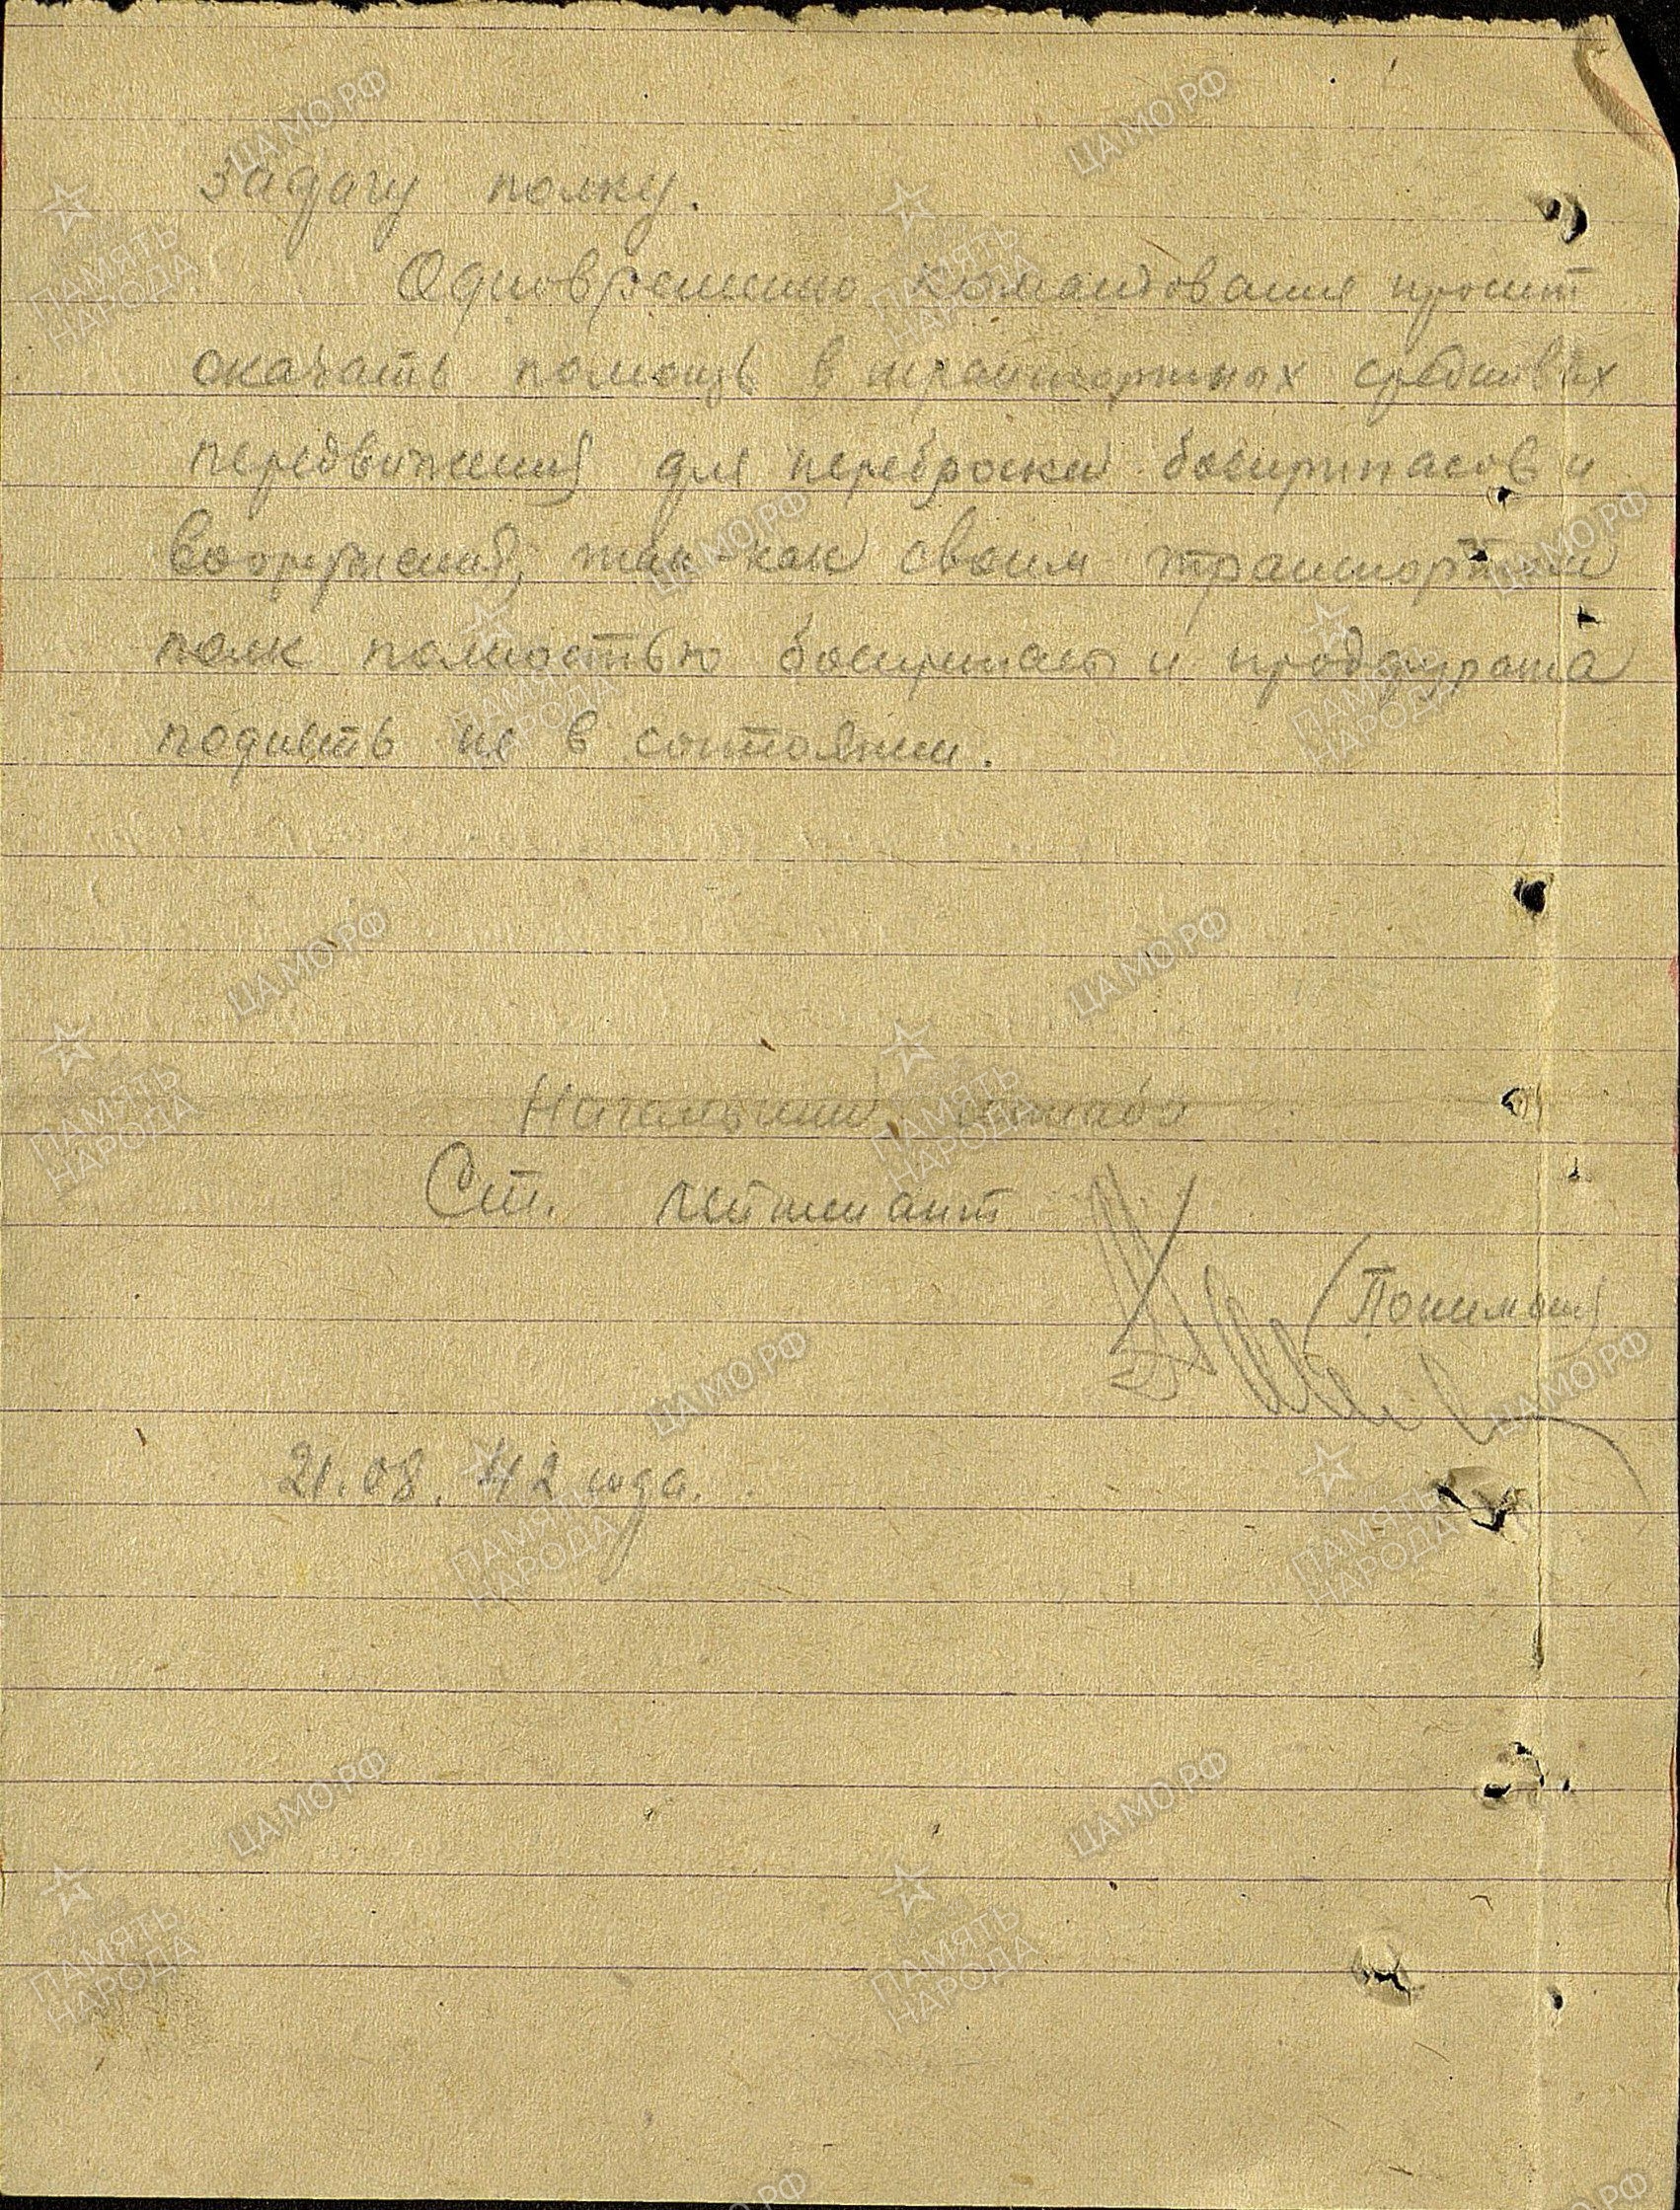 задачу полку.
Одновременно командование просит
оказать помощь в транспортных средствах
передвижения для переброски боеприпасов и
вооружения, так-как своим транспортом
полк полностью боеприпасы и продфуража
поднять не в состоянии.
Начальник штаба
Ст. лейтенант
21.08.42 года.